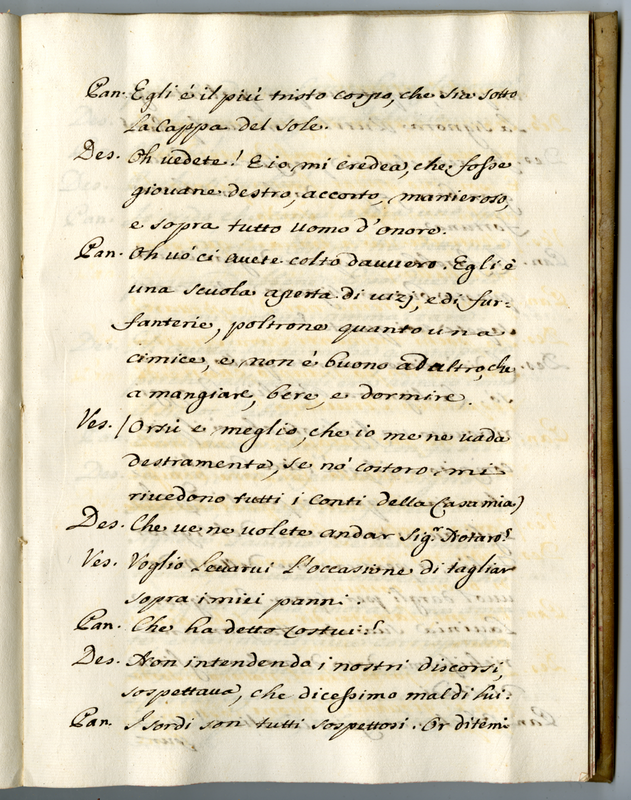 Pan. Egli é il più tristo corpo, che sia sotto
la Cappa del Sole.
Des. Oh vedete! E io, mi credea, che fosse
giovane destro, accorto, manieroso,
e sopra tutto uomo d'onore.
Pan. Oh vo' ci avete colto davvero. Egli è
una scuola aperta di vizj, e di fur:
fanterie, poltrone quanto una
cimice, e non é buono ad altro, che
a mangiare, bere, e dormire.
Ves. (Orsù e meglio, che io me ne vada
destramente, se nò costoro, mi
rivedono tutti i Conti della Casa mia)
Des. Che ve ne volete andar Sig.r Notaro?
Ves. Voglio Levarvi L'occasione di tagliar
sopra i miei panni.
Pan. Che ha detto Costui?
Des. Non intendenda i nostri discorsi,
sospettava, che dicessimo mal di lui:
Pan. I sordi son tutti sospettosi. Or ditemi